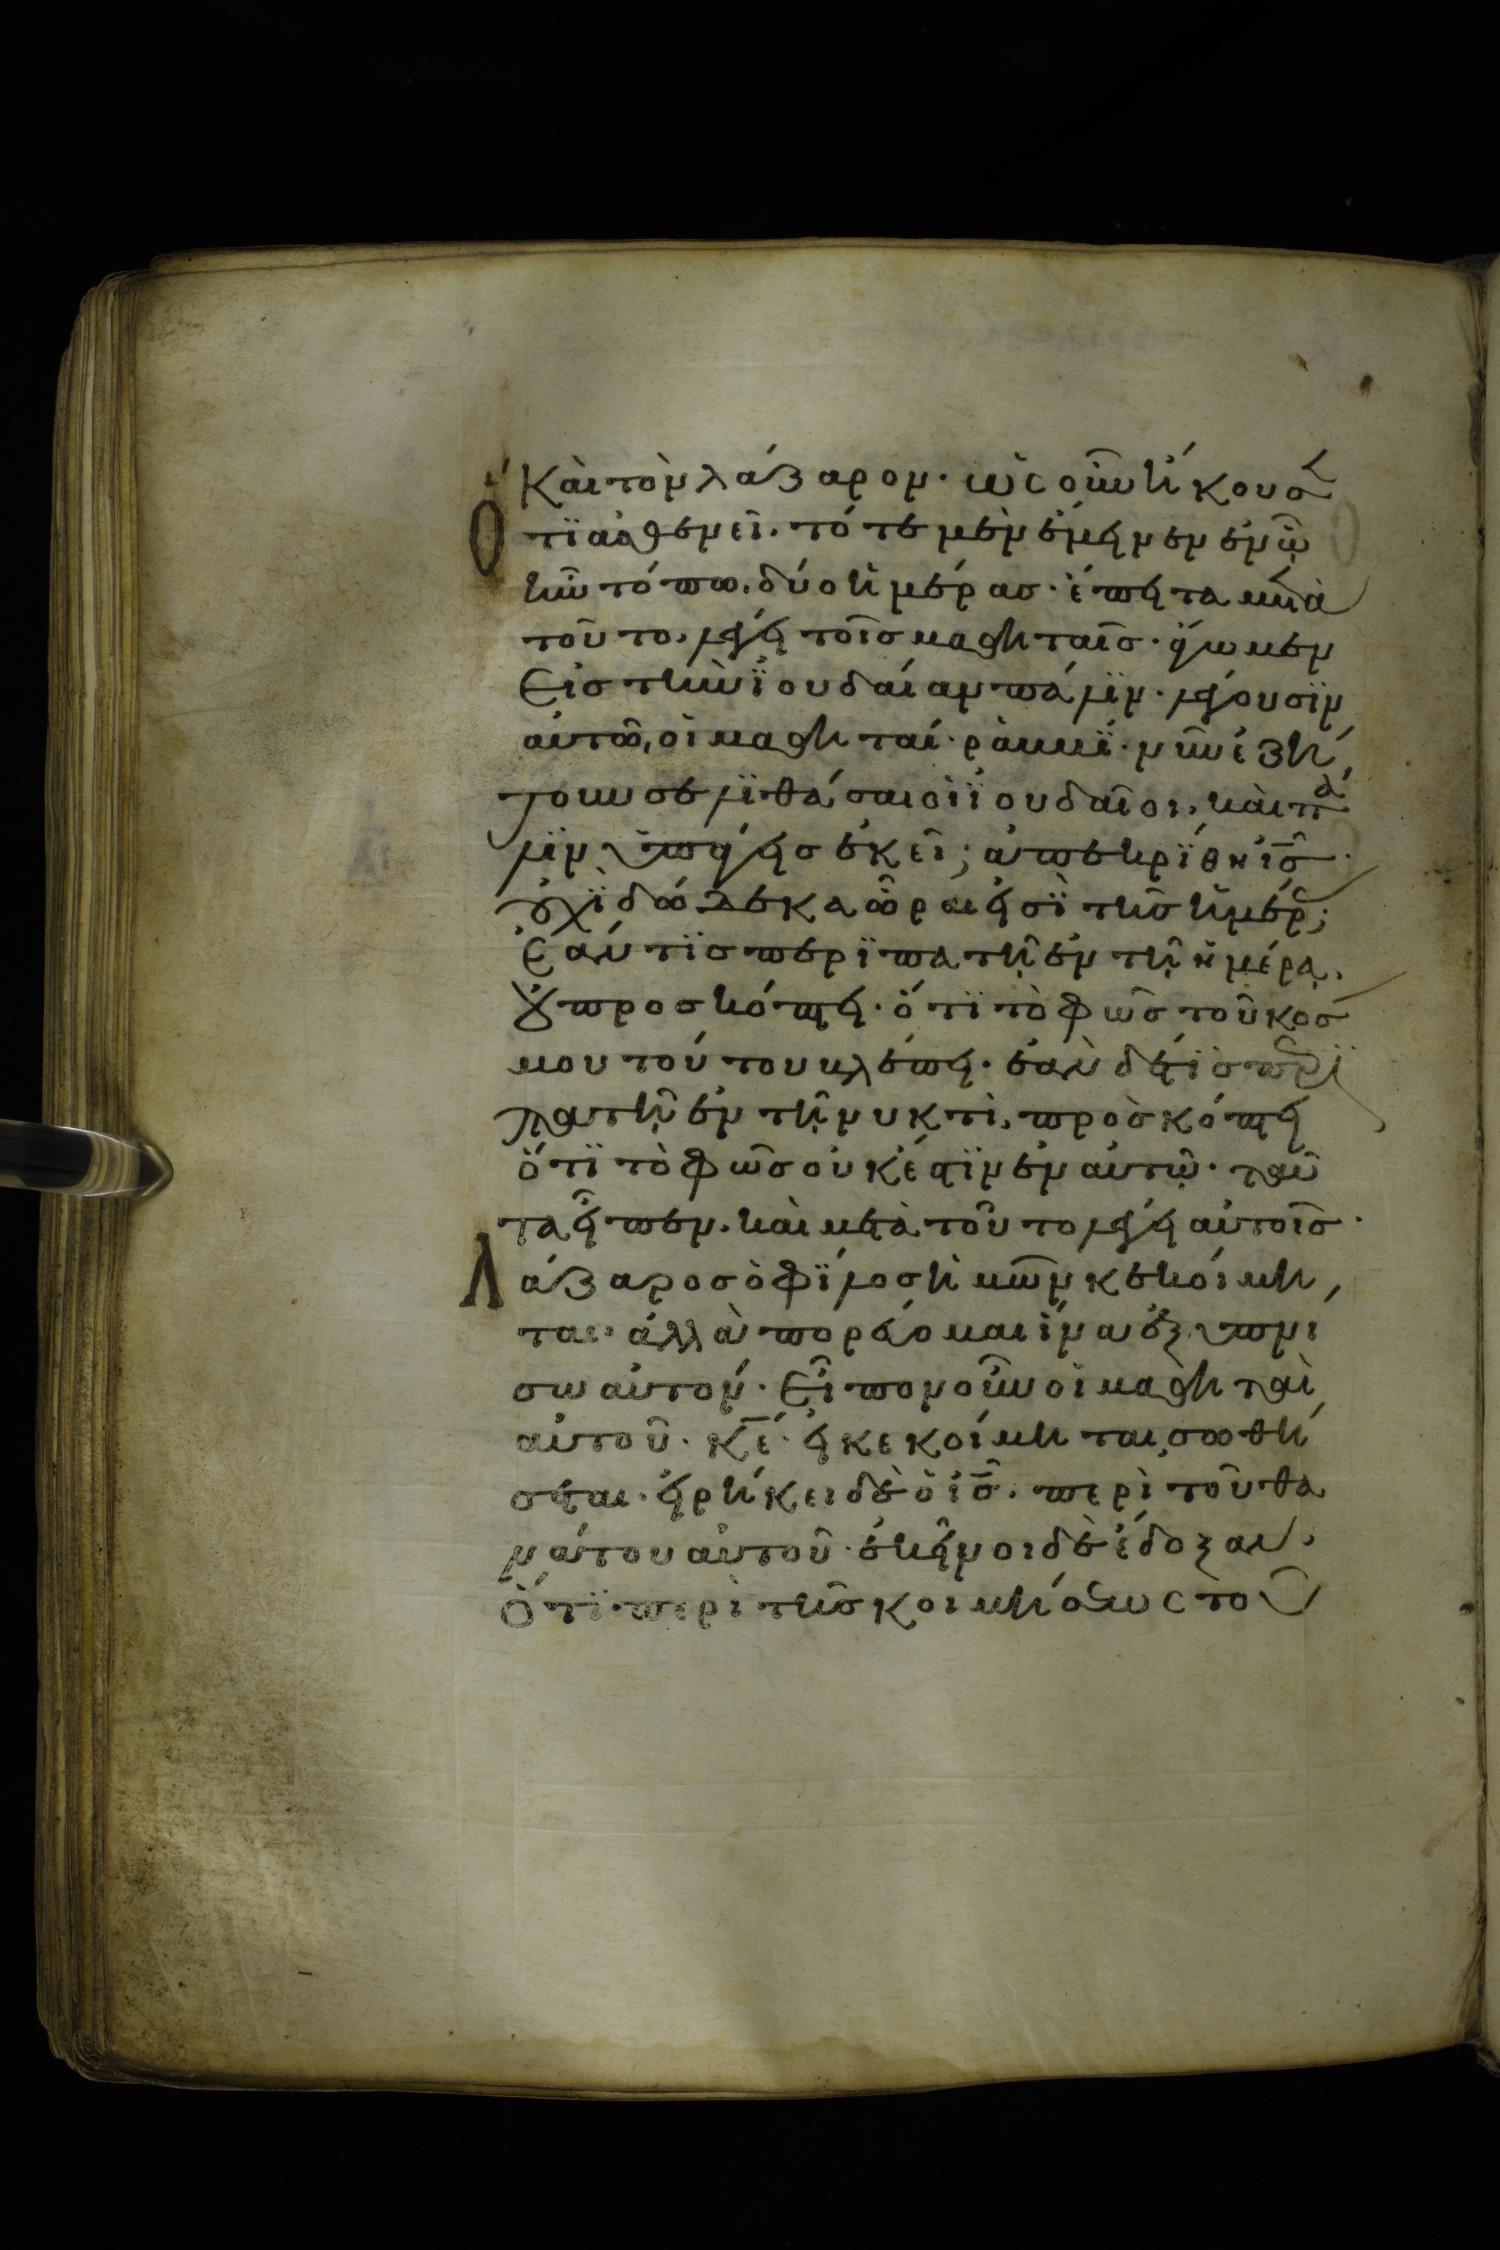 Καὶ τὸν λάζαρον· ὡς οὖν ἤκουσ
Ὅτϊ ἀσθενεῖ. τότε μὲν ἔμεινεν ἐν ᾧ
ἦν τόπω. δύο ἡμέρας· ἔπειτα μετὰ
τοῦτο, λέγει τοῖς μαθηταῖς· ἄγωμεν
Εἰς τὴν ϊουδαίαν πάλϊν· λέγουσϊν
αὐτῶ, οἱ μαθηταί· ῥαββϊ· νῦν ἐζή
τουν σε λϊθάσαι οἱ ϊουδαῖοι, καὶ πά
λϊν ὑπάγεις ἐκεῖ; ἀπεκρϊθη ἰς·
οὐχϊ δώδεκα ὧραι εἰσϊ τῆς ἡμέρ;
Ἐάν τϊς περϊπατῆ ἐν τῆ ἡμέρα.
οὐ προσκόπτει· ὅτϊ τὸ φῶς τοῦ κοσ
μου τούτου βλέπει· ἐὰν δέ τϊς περϊ
πατῆ ἐν τῆ νυκτὶ, προσκόπτει
ὅτϊ τὸ φῶς οὐκ έστϊν ἐν αὐτῶ· ταῦ
τα εἶπεν. καὶ μετὰ τοῦτο λέγει αὐτοῖς·
Λάζαρος ὁ φϊλος ἡμῶν κεκοίμη
ται· ἀλλὰ πορεύομαι ἵνα ἐξυπνι
σω αὐτόν· Εἶπον οὖν οἱ μαθηταὶ
αὐτοῦ· κε· εἰ κεκοίμηται, σωθή
σεται· εἰρήκει δὲ ὁ ἰς· περὶ τοῦ θα
νάτου αὐτοῦ· ἐκεῖνοι δὲ ἔδοξαν.
Ὅτϊ περὶ τῆς κοιμήσεως τοῦ